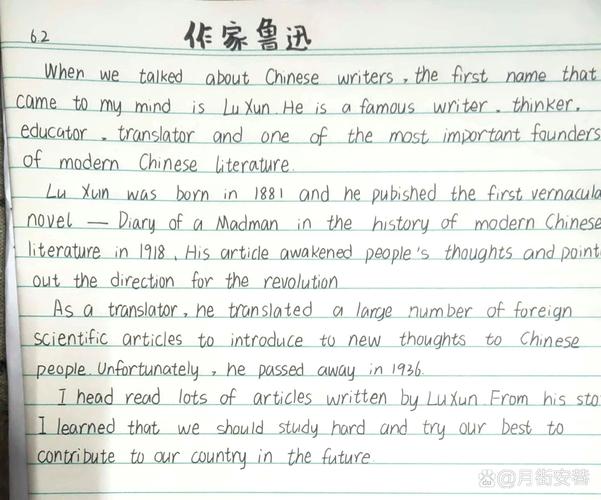 6.2
作家鲁迅
When we talked about Chinese writers, the first name that
came to my mind is Lu Xun. He is a famous writer. thinker.
educator. translator and one of the most important founders
of modern Chinese literature.
Lu Xun was born in 1881 and he pubished the first vernacula
novel — Diary of a Madman in the history of modern Chinese
literature in 1918. His article awakened people's thoughts and point
out the direction for the revolution
As a translator, he translated a large number of foreign
scientific articles to introduce to new thoughts to Chinese
people. Unfortunately, he passed away in 1936.
I head read lots of articles written by Lu Xun. From his sto
I learned that we should study hard and try our best to
contribute to our country in the future.